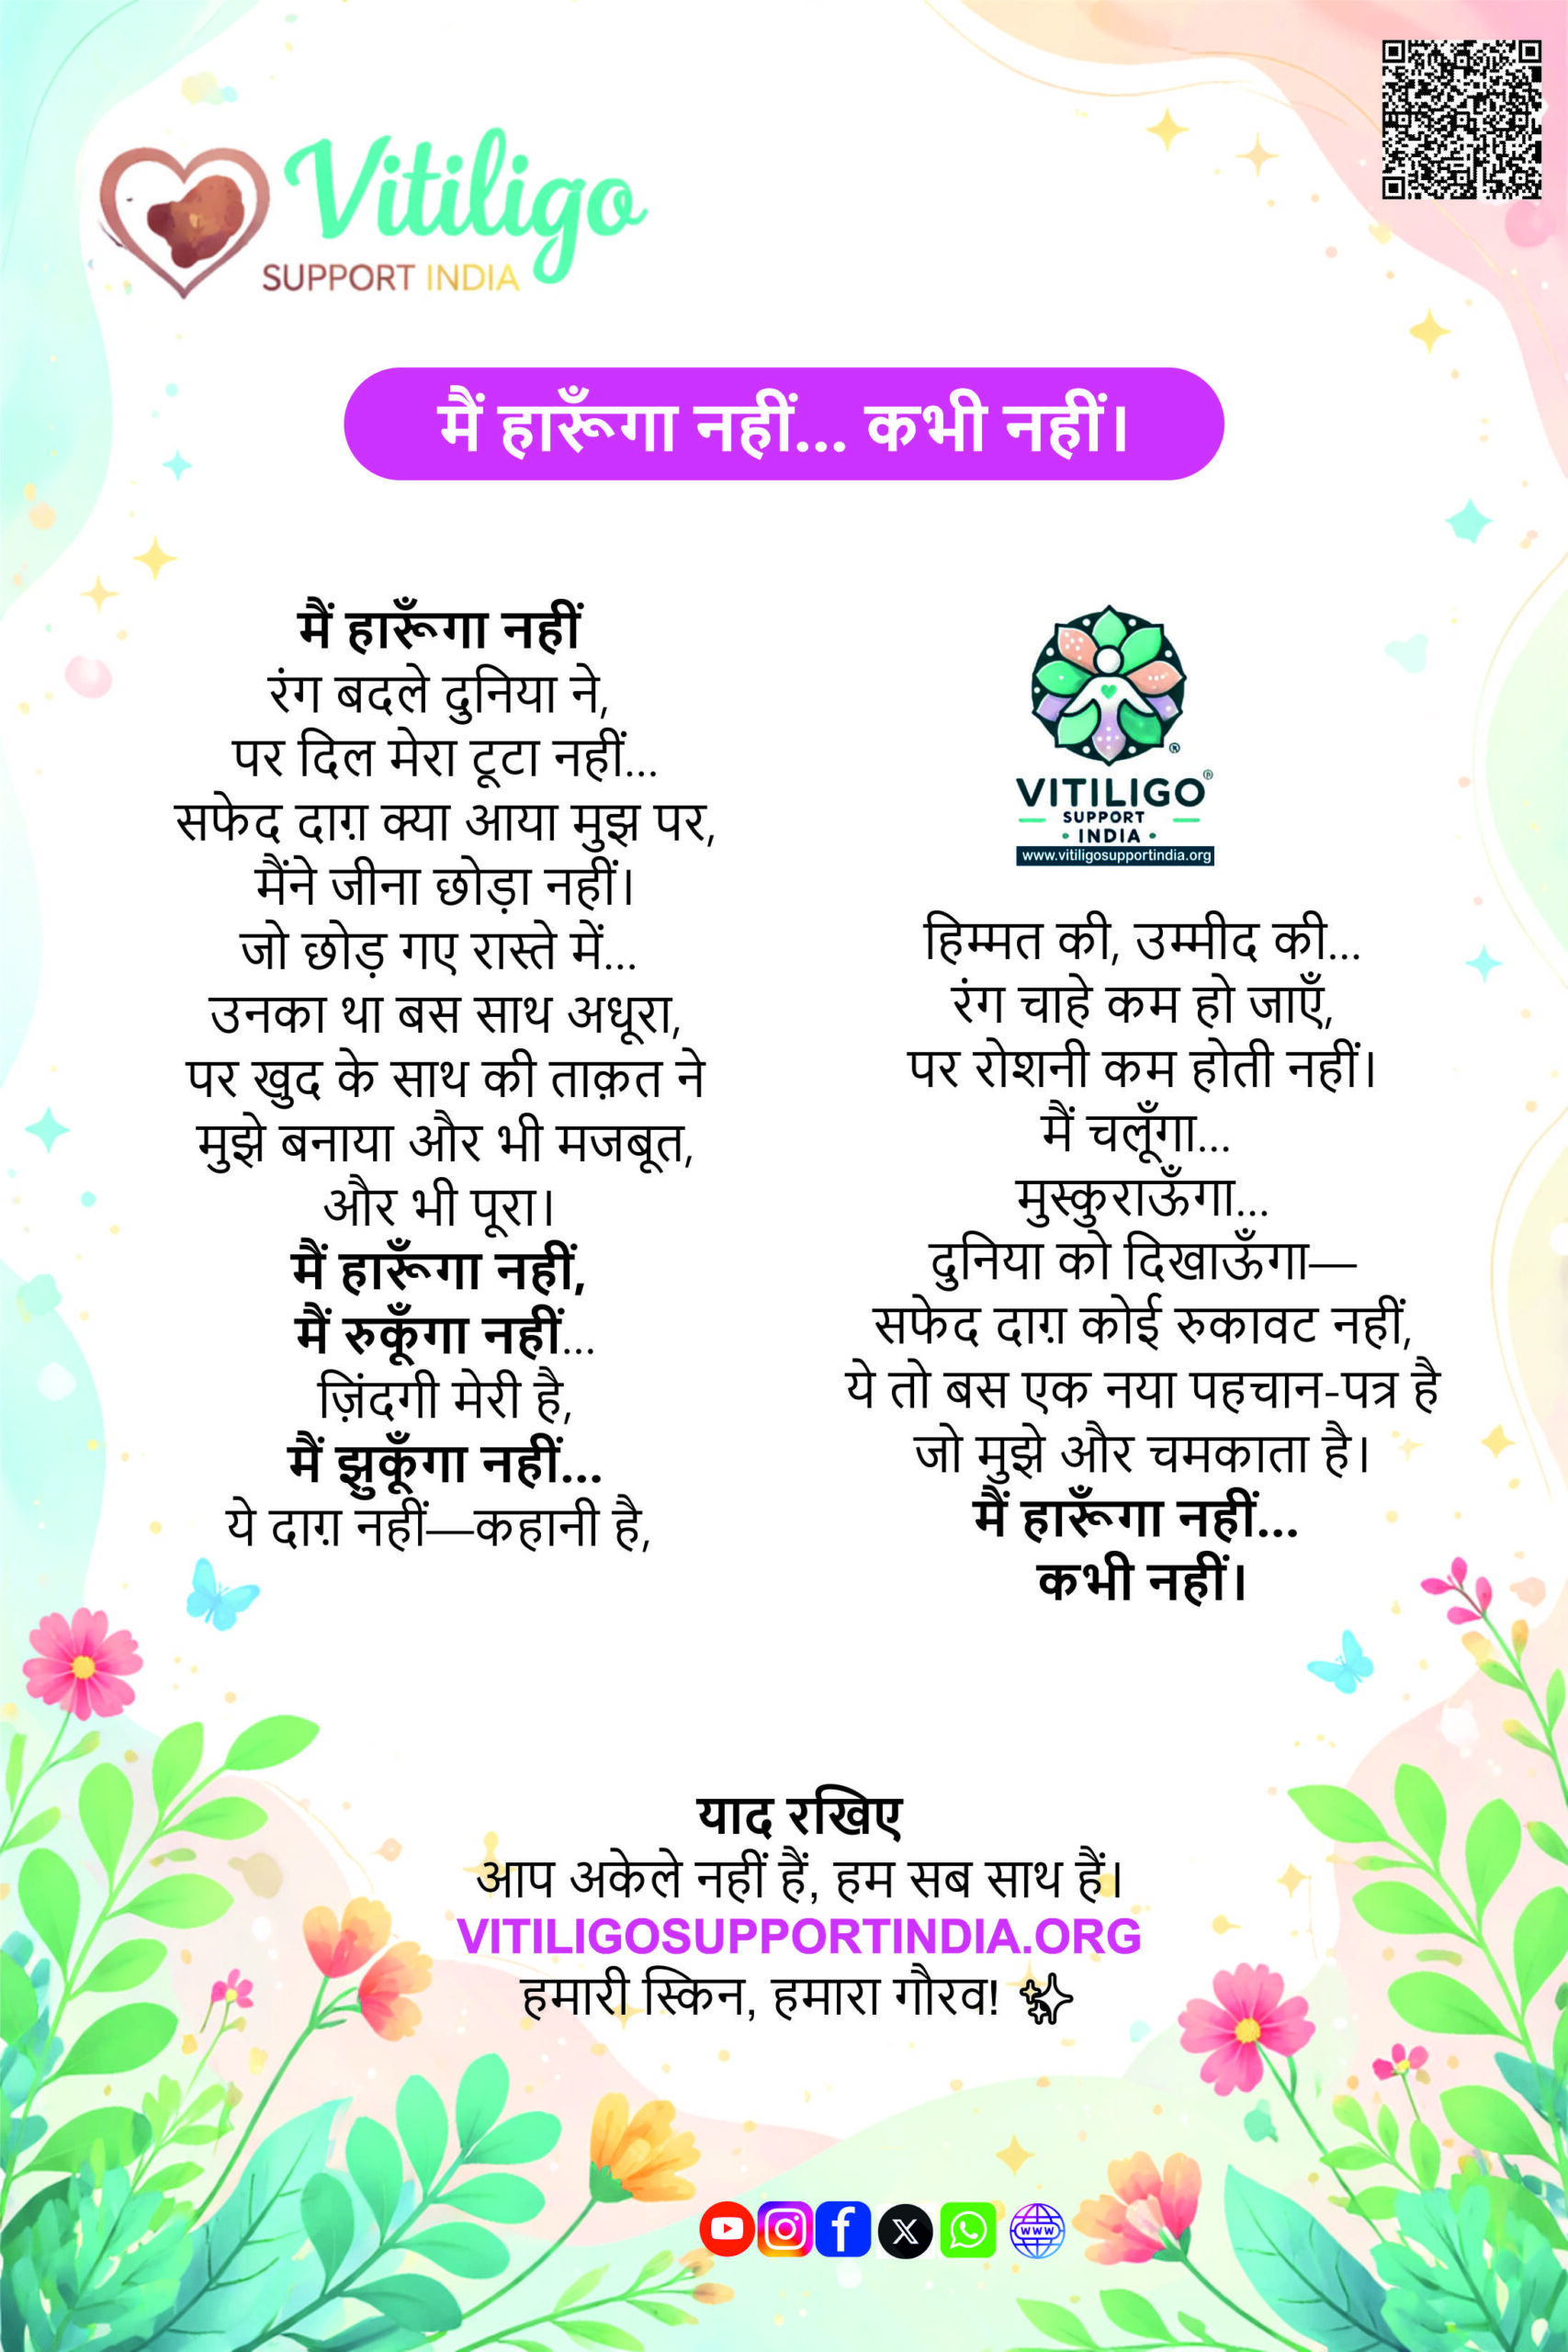 Vitiligo
SUPPORT INDIA
मैं हारूँगा नहीं... कभी नहीं।
मैं हारूँगा नहीं
रंग बदले दुनिया ने,
पर दिल मेरा टूटा नहीं...
सफेद दाग़ क्या आया मुझ पर,
मैंने जीना छोड़ा नहीं।
जो छोड़ गए रास्ते में...
उनका था बस साथ अधूरा,
पर खुद के साथ की ताक़त ने
मुझे बनाया और भी मजबूत,
और भी पूरा।
मैं हारूँगा नहीं,
मैं रुकूँगा नहीं...
ज़िंदगी मेरी है,
मैं झुकूँगा नहीं...
ये दाग़ नहीं—कहानी है,
VITILIGO®
SUPPORT
• INDIA •
www.vitiligosupportindia.org
हिम्मत की, उम्मीद की...
रंग चाहे कम हो जाएँ,
पर रोशनी कम होती नहीं।
मैं चलूँगा...
मुस्कुराऊँगा...
दुनिया को दिखाऊँगा—
सफेद दाग़ कोई रुकावट नहीं,
ये तो बस एक नया पहचान-पत्र है
जो मुझे और चमकाता है।
मैं हारूँगा नहीं...
कभी नहीं।
याद रखिए
आप अकेले नहीं हैं, हम सब साथ हैं।
VITILIGOSUPPORTINDIA.ORG
हमारी स्किन, हमारा गौरव!
www